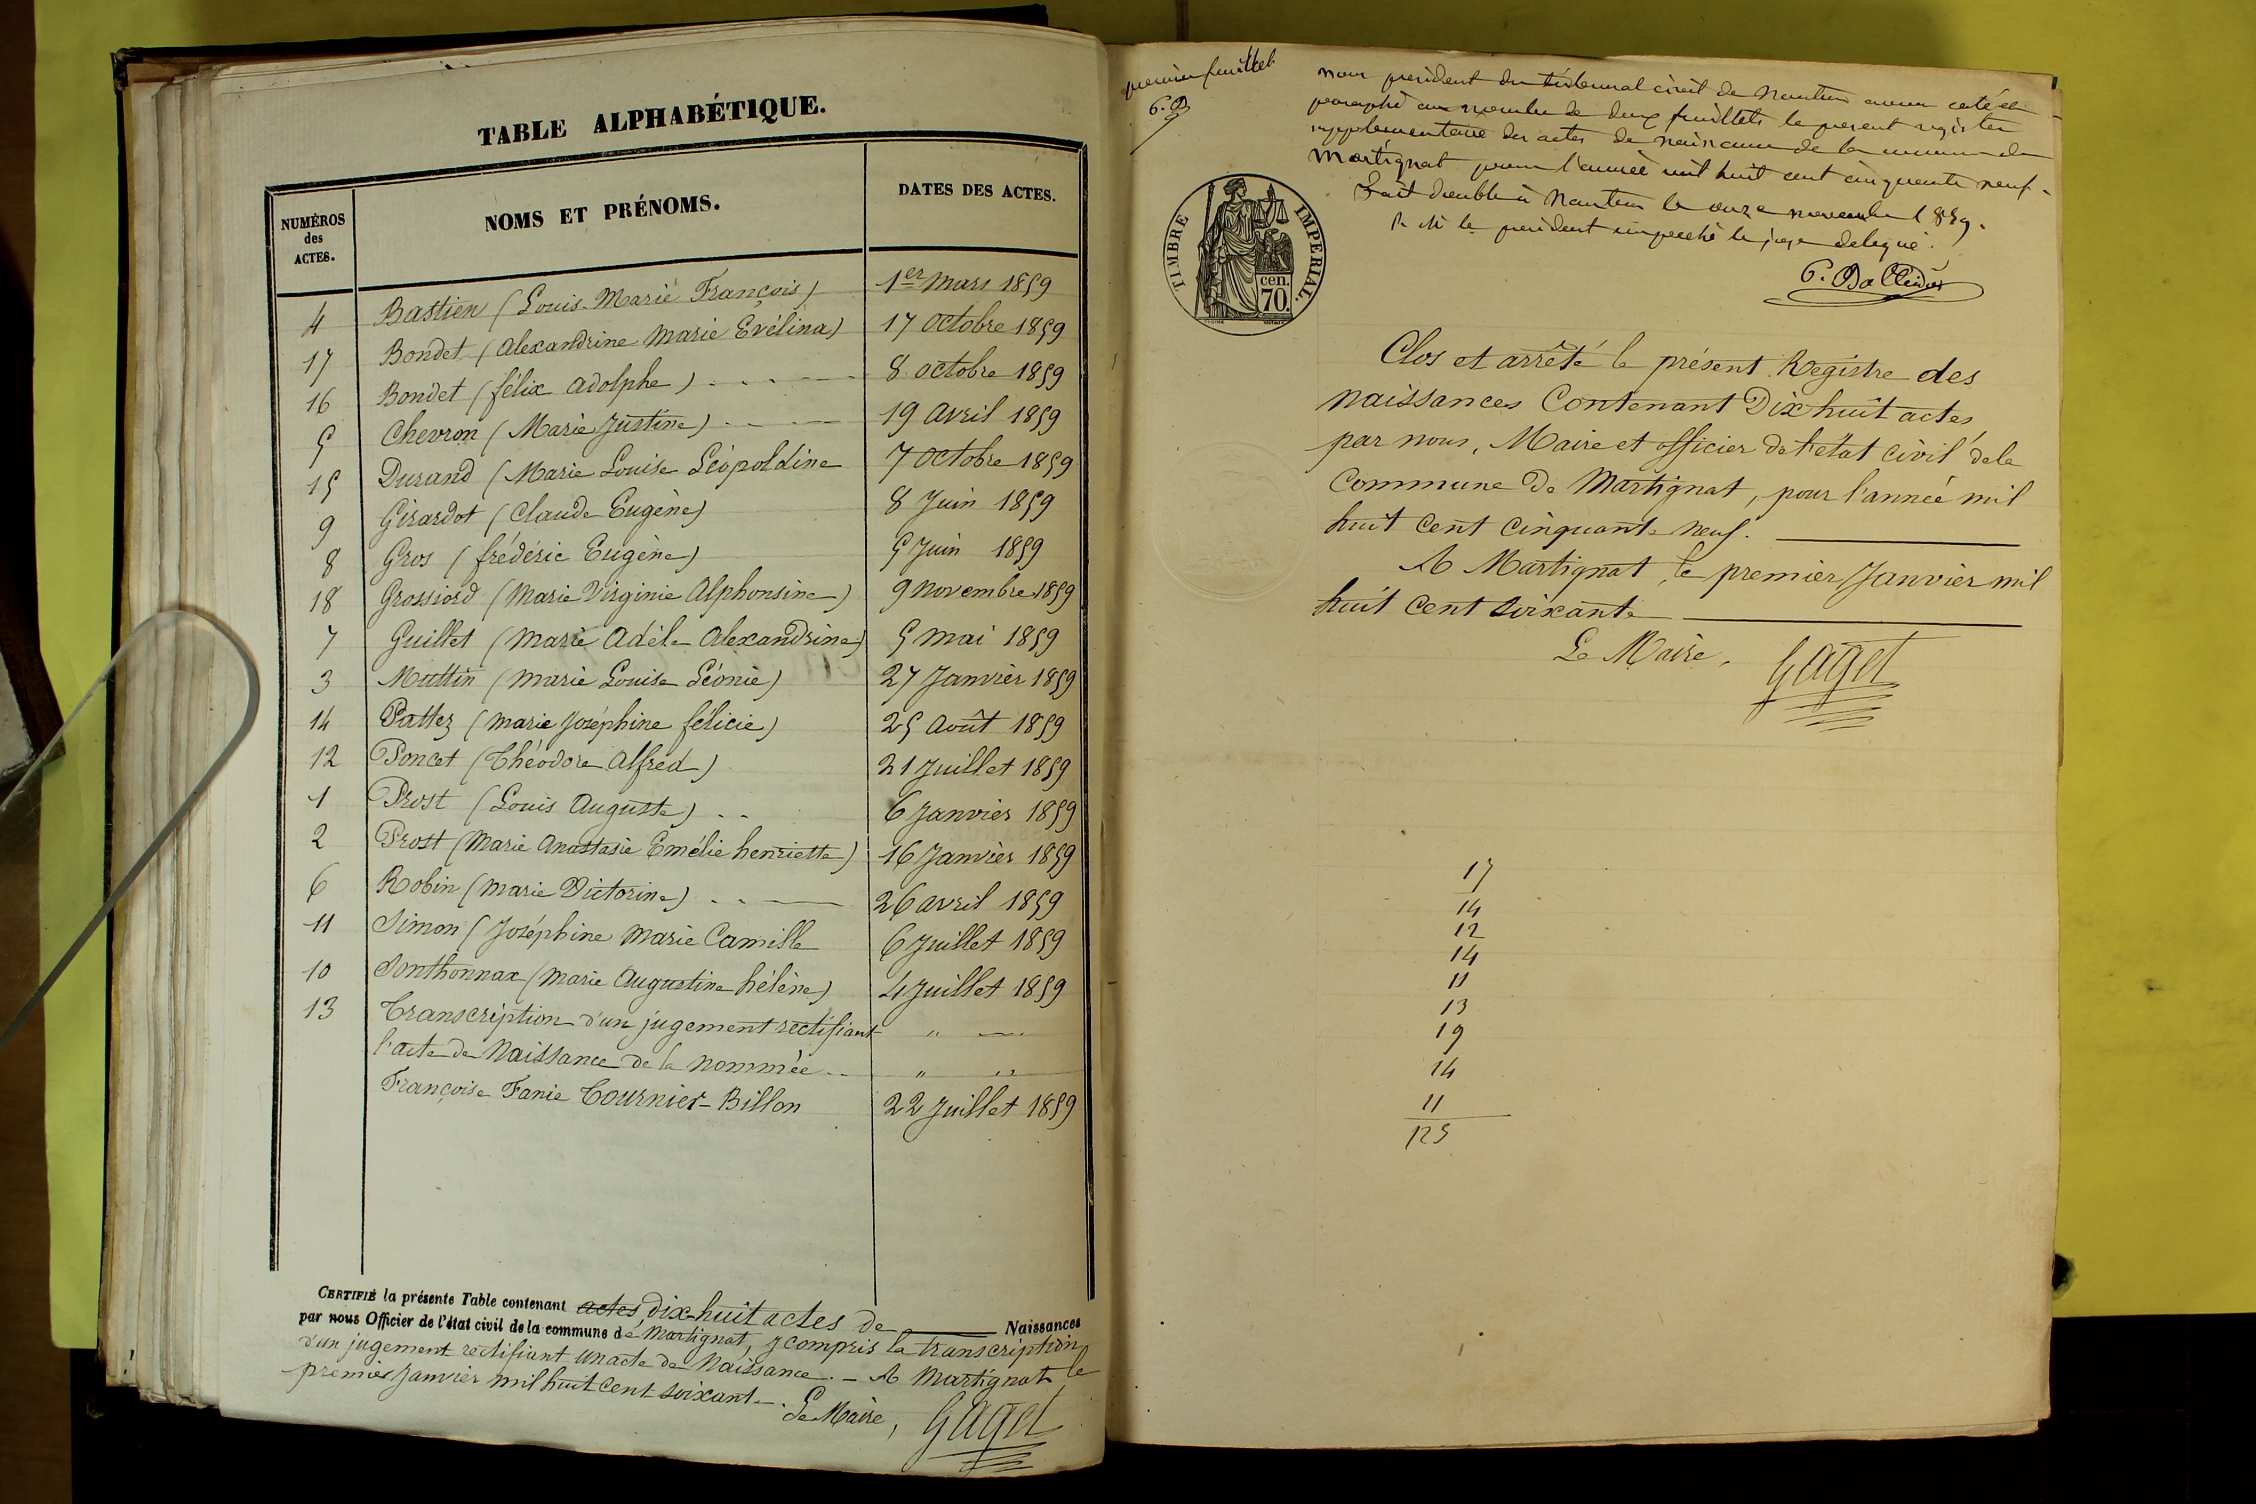 TABLE ALPHABÉTIQUE.
NUMÉROS des ACTES. NOMS ET PRÉNOMS. DATES DES ACTES.
4 Bastien (Louis-Marie François) 1er Mars 1859
17 Bondet (Alexandrine Marie Évélina) 17 octobre 1859
16 Bondet (félix adolphe) 8 octobre 1859
5 Chevron (Marie Justine) 19 avril 1859
15 Durand (Marie Louise Léopoldine 7 octobre 1859
9 Girardot (Claude Eugène) 8 Juin 1859
8 Gros (frédéric Eugène) 5 Juin 1859
18 Grossiord (Marie Virginie Alphonsine) 9 novembre 1859
7 Guillet (Marie Adèle Alexandrine) 5 mai 1859
3 Muttin (Marie Louise Léonie) 27 Janvier 1859
14 Pattez (Marie Joséphine félicie) 25 août 1859
12 Poncet (Théodore Alfred) 21 Juillet 1859
1 Prost (Louis Auguste) 6 Janvier 1859
2 Prost (Marie Anastasie Emélie henriette) 16 Janvier 1859
6 Robin (Marie Victorine) 26 avril 1859
11 Simon (Joséphine Marie Camille 6 Juillet 1859
10 Sonthonnax (Marie Augustine hélène) 4 Juillet 1859
13 Transcription d'un jugement rectifiant " "
l'acte de Naissance de la nommée " "
Françoise Fanie Tournier-Billon 22 Juillet 1859
CERTIFIÉ la présente Table contenant actes dix-huit actes de Naissances
par nous Officier de l'état civil de la commune de Martignat, y compris la transcription
d'un jugement rectifiant un acte de Naissance. - A Martignat le
premier Janvier mil huit cent soixante.
Le Maire, Gaget
premier feuillet
C. D
nous président du tribunal civil de Nantua avons coté et
paraphé au nombre de deux feuillets le présent registre
supplémentaire des actes de naissance de la commune de
Martignat pour l'année mil huit cent cinquante neuf.
Fait double à Nantua le onze novembre 1859.
le président empeché le juge delegué.
TIMBRE IMPÉRIAL.
70. cen.
Clos et arrêté le présent Registre des
Naissances Contenant Dix huit actes
par nous, Maire et officier de l'état civil de la
Commune de Martignat, pour l'année mil
huit cent cinquante neuf.
A Martignat, le premier Janvier mil
huit cent soixante
Le Maire, Gaget
17
14
12
14
11
13
19
14
11
125